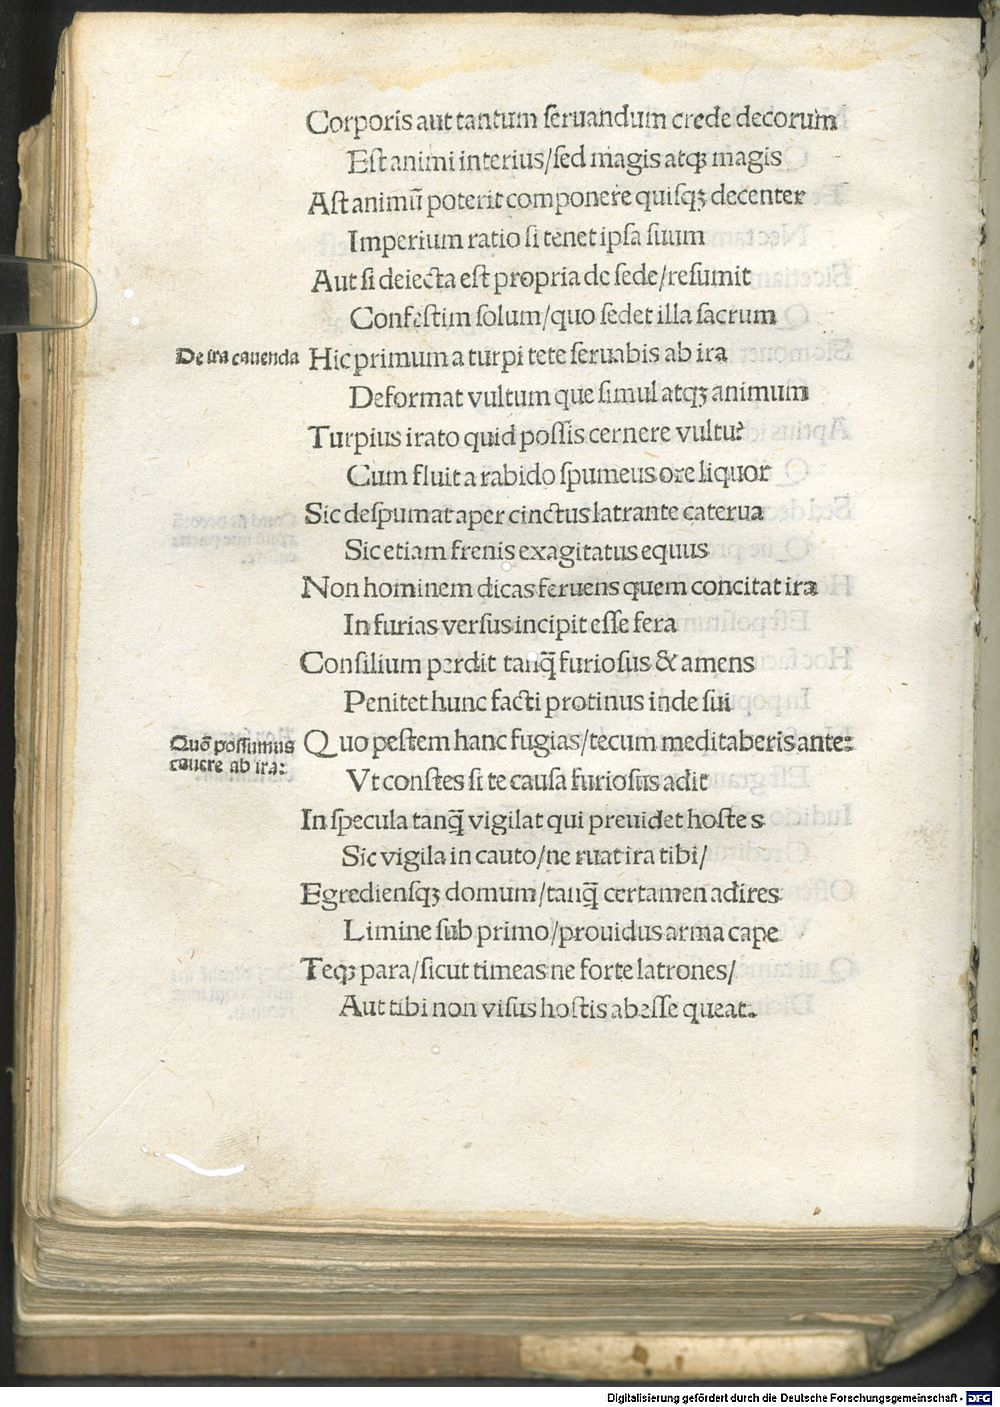 Corporis aut tantum ſeruandum crede decorum
Eſt animi interius/ſed magis atqꝫ magis
Aſt animū poterit componere quiſqꝫ decenter
Imperium ratio ſi tenet ipſa ſuum
Aut ſi deiecta eſt propria de ſede/reſumit
Confeſtim ſolum/quo ſedet illa ſacrum
De ira cauenda
Hic primum a turpi tete ſeruabis ab ira
Deformat vultum que ſimul atqꝫ animum
Turpius irato quid poſſis cernere vultu?
Cum fluit a rabido ſpumeus ore liquor
Sic deſpumat aper cinctus latrante caterua
Sic etiam frenis exagitatus equus
Non hominem dicas feruens quem concitat ira
In furias verſus incipit eſſe fera
Conſilium perdit tanq̄ furioſus & amens
Penitet hunc facti protinus inde ſui
Quō poſſumus
cauere ab ira:
Quo peſtem hanc fugias/tecum meditaberis ante:
Vt conſtes ſi te cauſa furioſus adit
In ſpecula tanq̄ vigilat qui preuidet hoſtes
Sic vigila in cauto/ne ruat ira tibi/
Egredienſqꝫ domum/tanq̄ certamen adires
Limine ſub primo/prouidus arma cape
Teqꝫ para/ſicut timeas ne forte latrones/
Aut tibi non viſus hoſtis abeſſe queat.
Digitalisierung gefördert durch die Deutsche Forschungsgemeinschaft - DFG